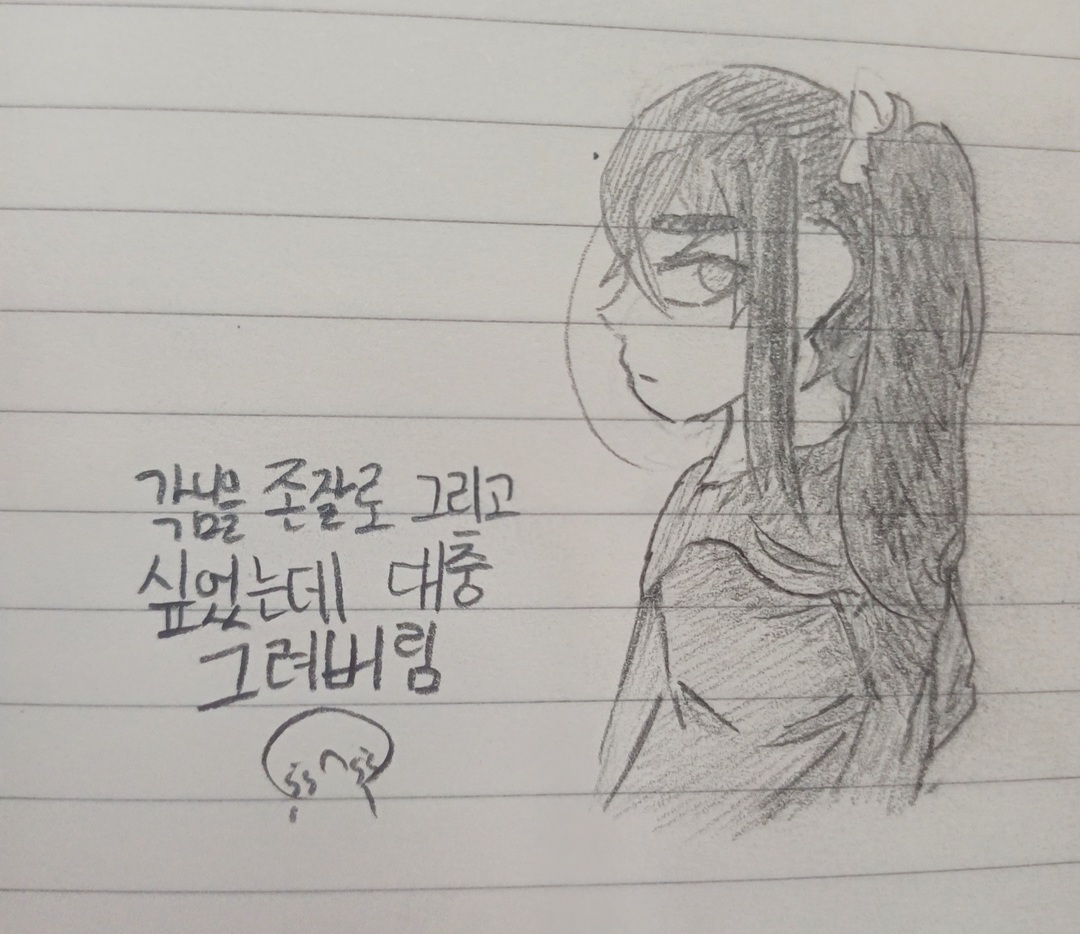 각님을 존잘로 그리고
싶었는데 대충
그려버림